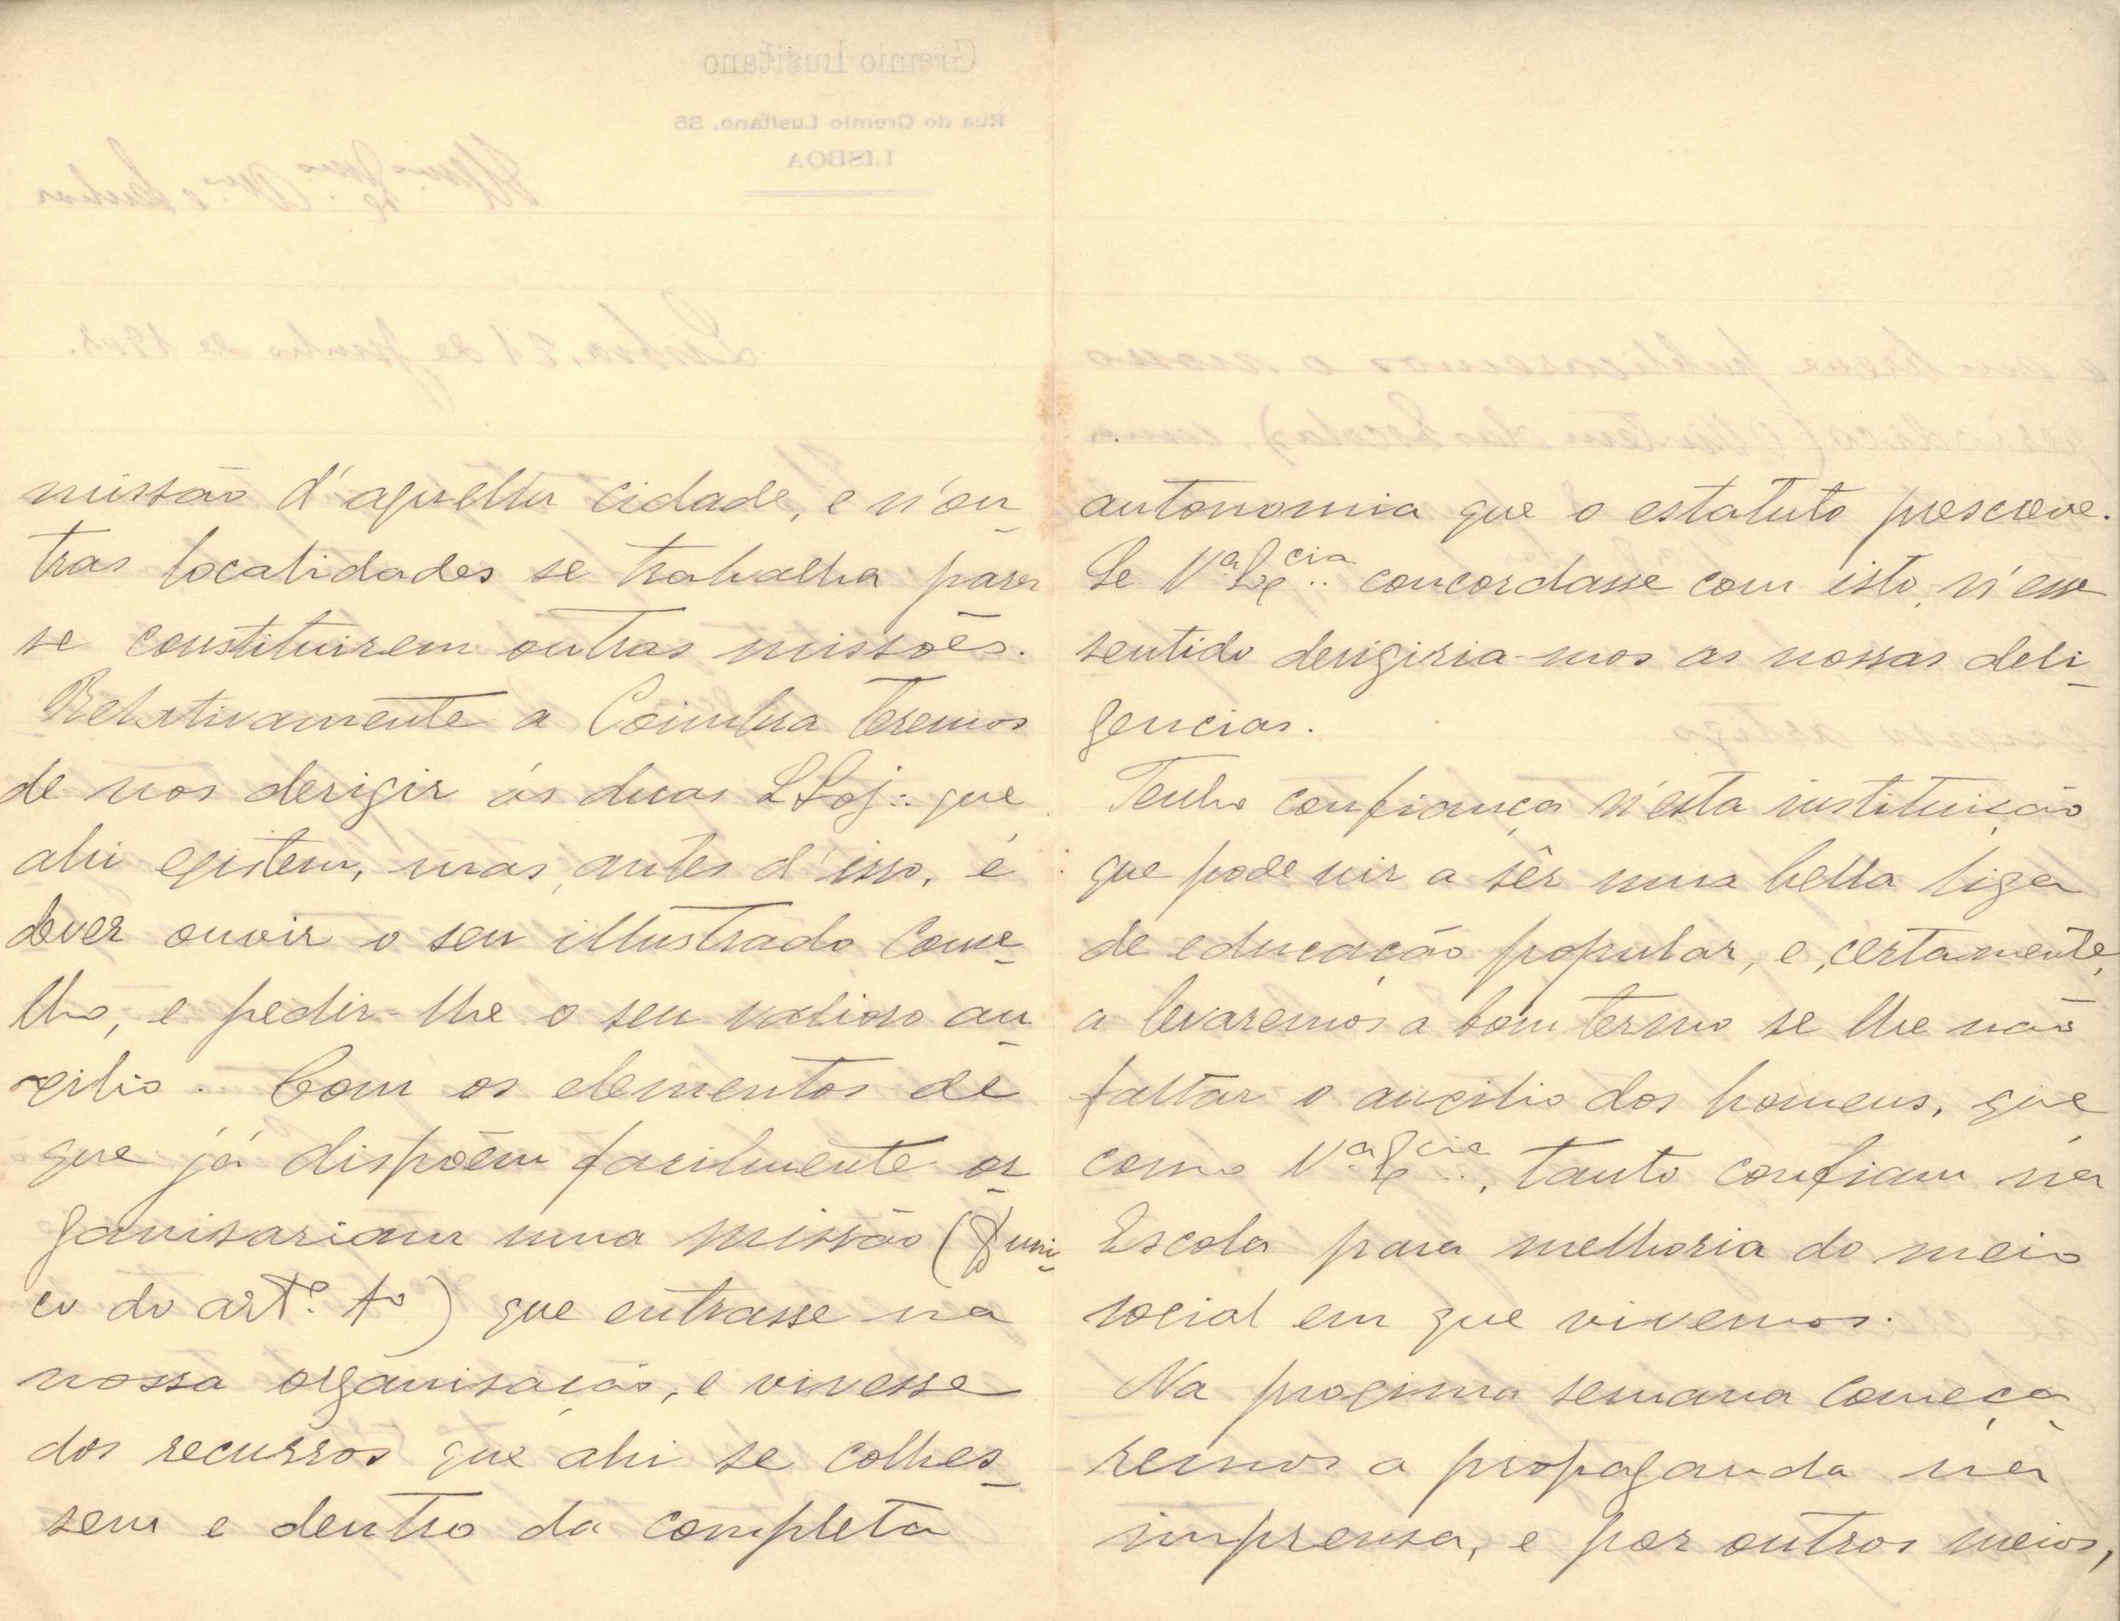 missão d'aquella cidade, e n'ou-
tras localidades se trabalha para
se constituirem outras missões.
Relativamente a Coimbra teremos
de nos derigir ás duas LLoj∴ que
ahi existem, mas, antes d'isso, é
dever ouvir o seu illustrado conse-
lho, e pedir-lhe o seu valioso au-
xilio. Com os elementos de
que já dispõem facilmente or-
ganisariam uma missão (§ uni-
co do art.º 1º) que entrasse na
nossa organisação, e vivesse
dos recursos que ahi se colhes-
sem e dentro da completa
autonomia que o estatuto prescreve.
Se V.ª Ex.cia concordasse com isto, n'esse
sentido derigiria-mos as nossas deli-
gencias.
Tenho confiança n'esta instituição
que pode vir a sêr uma bella liga
de educação popular, e, certamente,
a levaremos a bom termo se lhe não
faltar o auxilio dos homens, que,
como V.ª Ex.cia, tanto confiam na
Escola para melhoria do meio
social em que vivemos.
Na proxima semana começa-
remos a propaganda na
imprensa, e por outros meios,
Gremio Lusitano
Rua do Gremio Lusitano, 35
LISBOA
Lisboa, 21 de Junho de 1908.
e em breve publicaremos o nosso